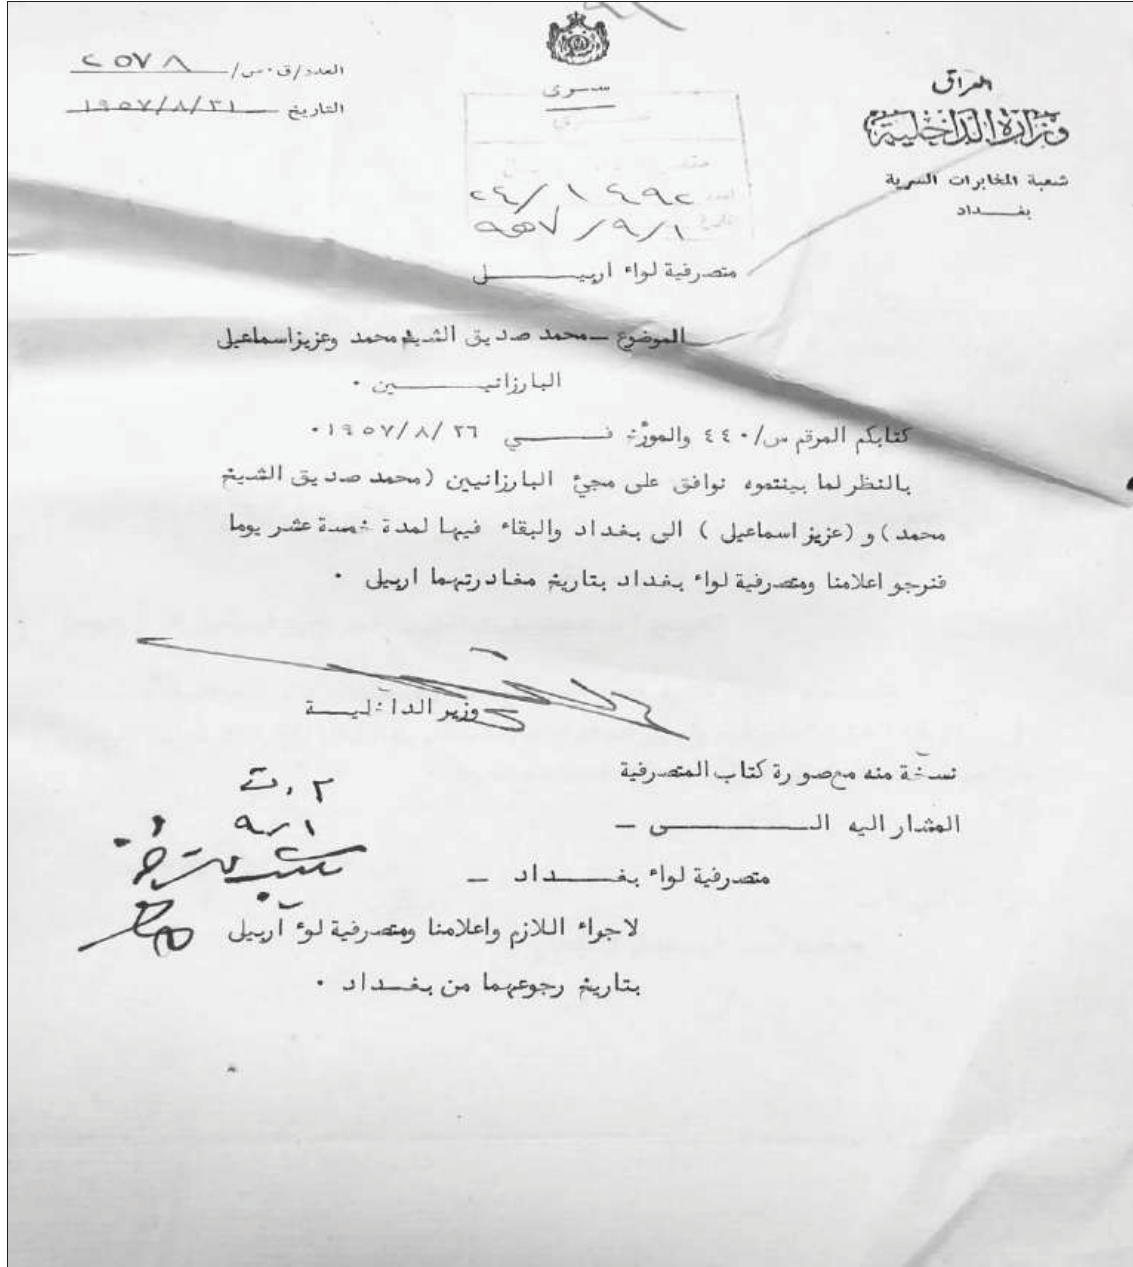 العراق
وزارة الداخلية
شعبة المخابرات السرية
بغـــداد
العدد/ق.س/ ٢٥٧٨
التاريخ ١٩٥٧/٨/٣١
ســـرى
العدد ١٤٩٢/٢٤
٩٥٧/٩/١
متصرفية لواء اربيـــــل
الموضوع ــ محمد صديق الشيخ محمد وعزيز اسماعيل
البارزانيـــــين ٠
كتابكم المرقم س/٤٤٠ والمؤرخ فـــــي ١٩٥٧/٨/٢٦٠
بالنظر لما بينتموه نوافق على مجئ البارزانيين (محمد صديق الشيخ
محمد) و (عزيز اسماعيل ) الى بغداد والبقاء فيها لمدة خمسة عشر يوما
فنرجو اعلامنا ومتصرفية لواء بغداد بتاريخ مغادرتهما اربيل ٠
وزير الداخليـــة
نسخة منه مع صورة كتاب المتصرفية
المشار اليه الـــــــى ــ
متصرفية لواء بغـــــداد ــ
لاجراء اللازم واعلامنا ومتصرفية لوء أربيل
بتاريخ رجوعهما من بغـــداد ٠
م.ت
٩/١